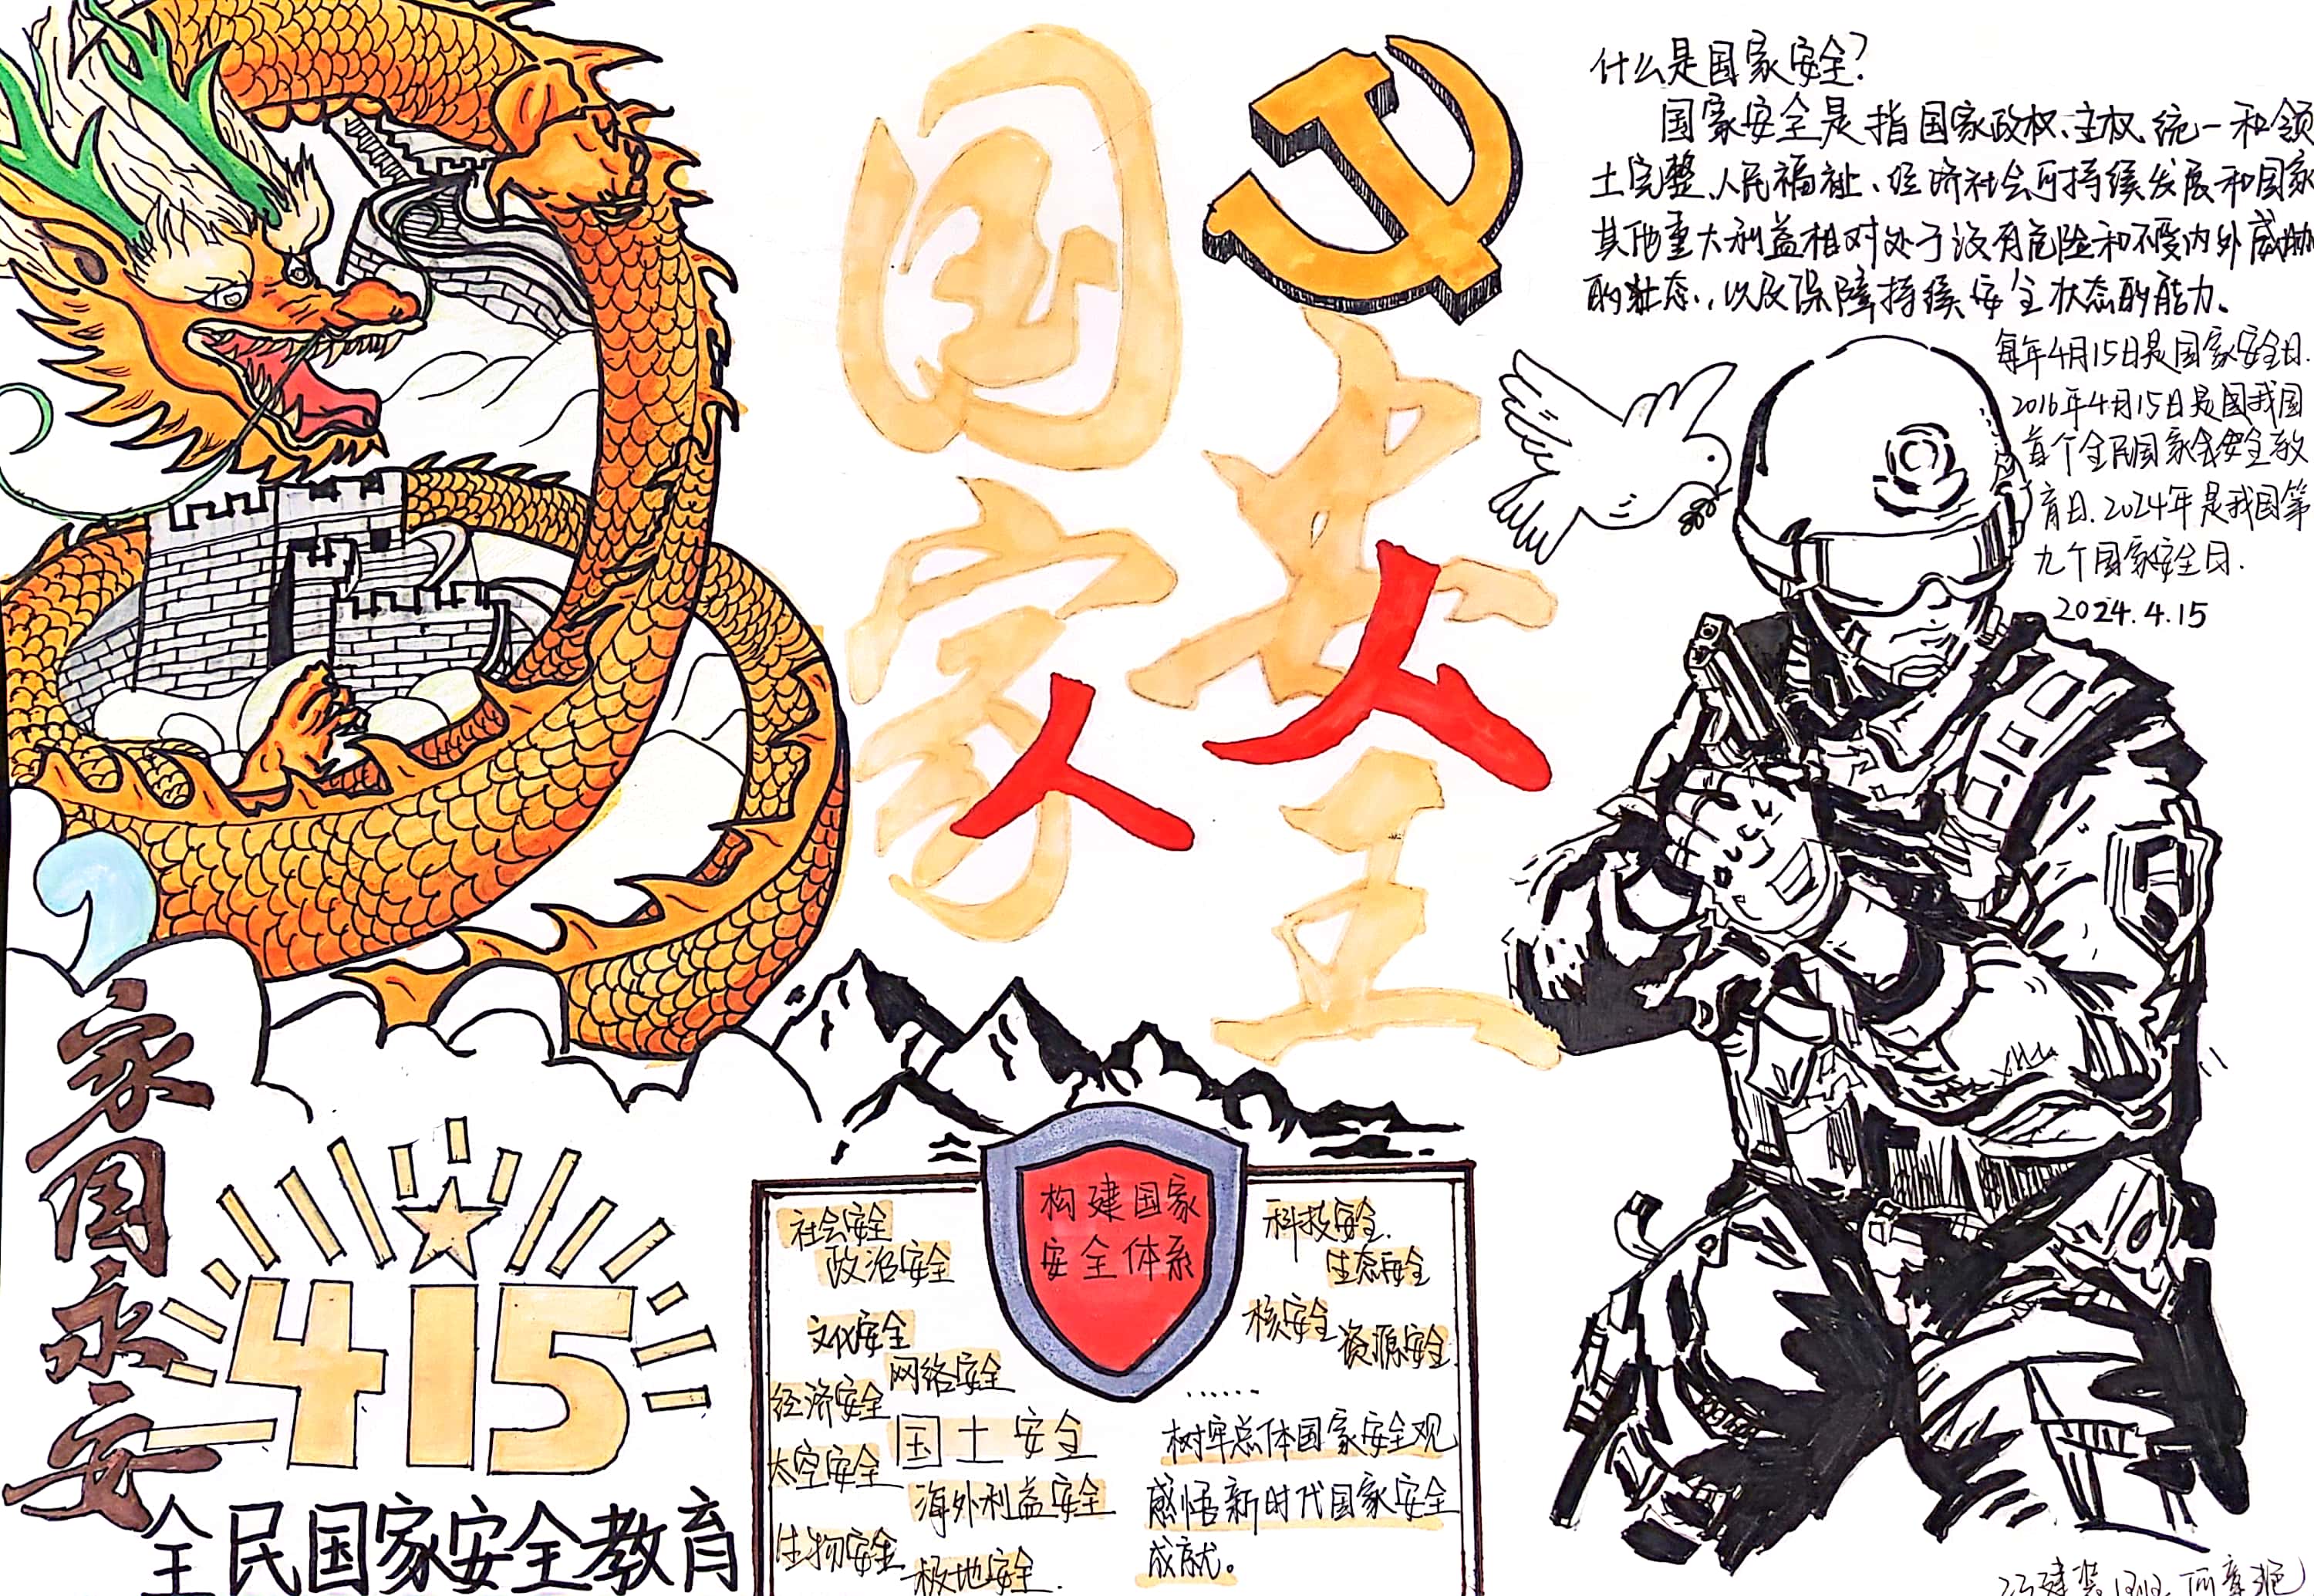 国家安全
什么是国家安全?
国家安全是指国家政权、主权、统一和领
土完整、人民福祉、经济社会可持续发展和国家
其他重大利益相对处于没有危险和不受内外威胁
的状态,以及保障持续安全状态的能力。
每年4月15日是国家安全日.
2016年4月15日是国我国
首个全民国家安全教
育日.2024年是我国第
九个国家安全日.
2024.4.15
家国永安
415
全民国家安全教育
构建国家
安全体系
社会安全
政治安全
文化安全
网络安全
经济安全
国土安全
太空安全
海外利益安全
生物安全
极地安全.
科技安全.
生态安全
核安全
资源安全.
……
树牢总体国家安全观
感悟新时代国家安全
成就。